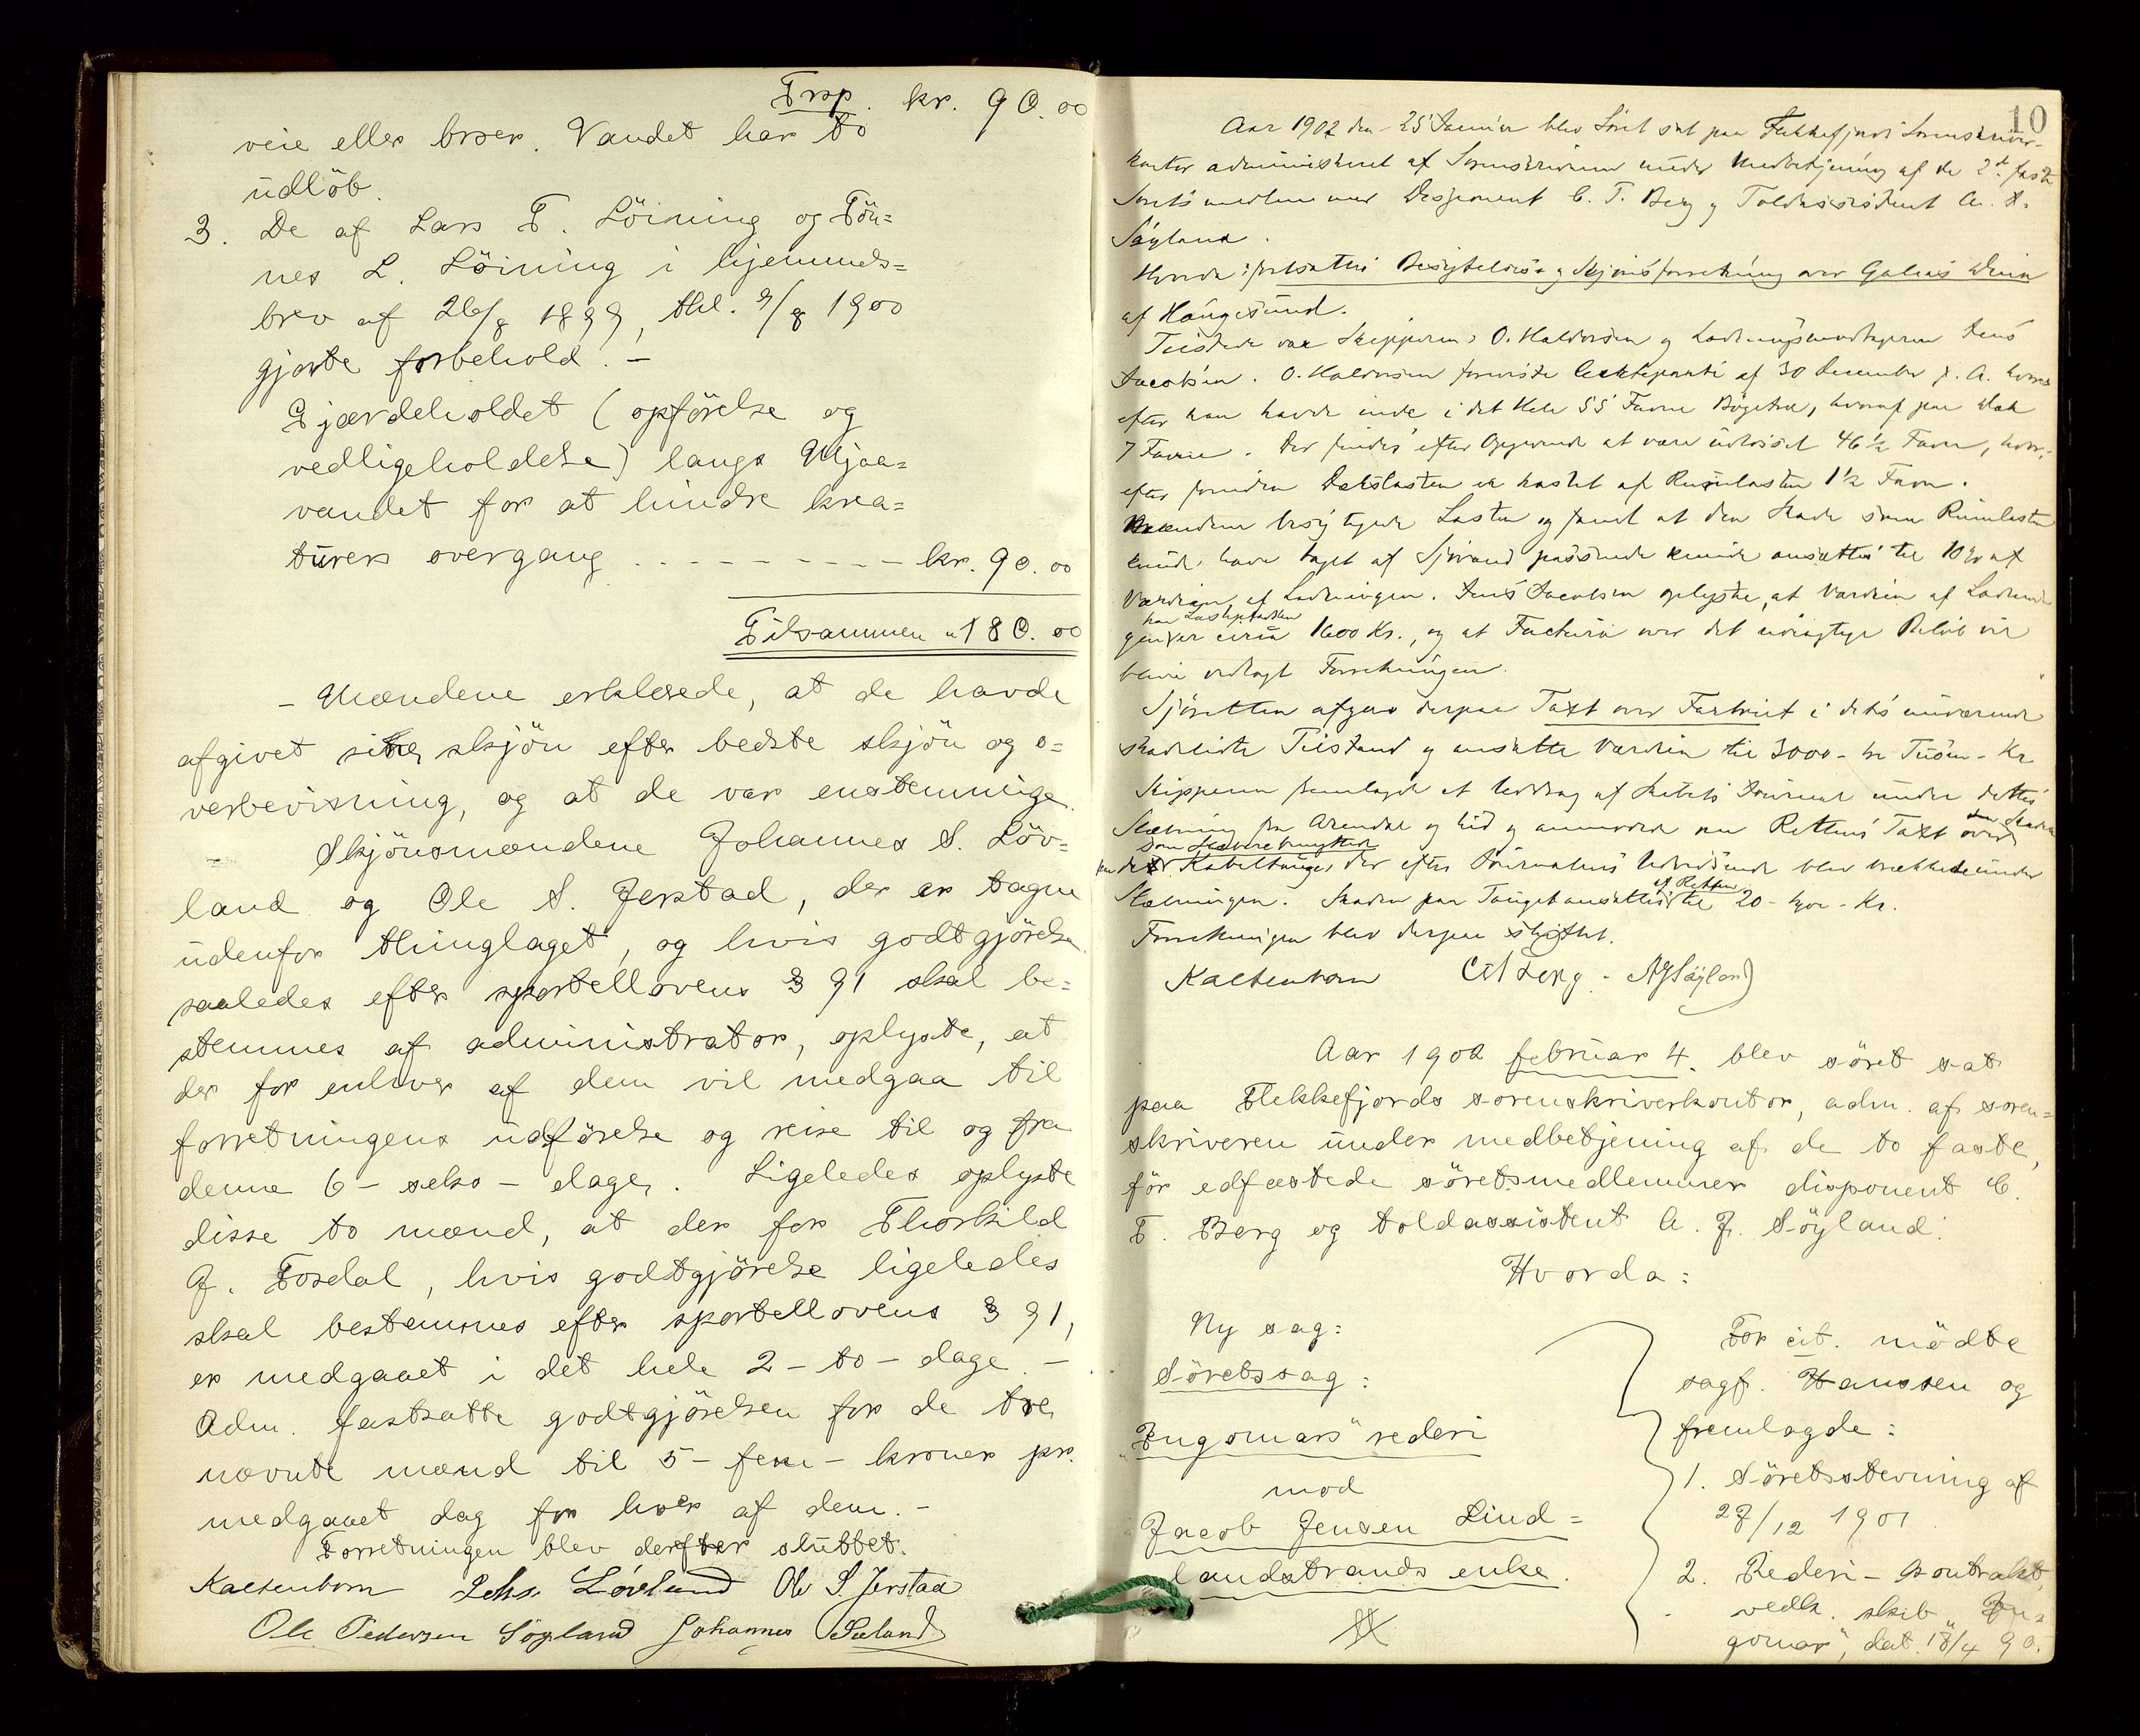 Trsp. kr. 90.00
veie eller broer. Vandet har to
udlöb.
3. De af Lars T. Löining og Tön=
nes L. Löining i hjemmels=
brev af 26/8 1899, thl. 9/8 1900
gjorte forbehold. –
Gjærdeholdet (opförelse og
vedligeholdelse) langs Mjaa=
vandet for at hindre krea=
turers overgang . . - - - - - - - - kr. 90.00
Tilsammen " 180.00
– Mændene erklærede, at de havde
afgivet sit skjön efter bedste skjön og o=
verbevisning, og at de var enstemmige.
Skjönsmændene Johannes S. Löv=
land og Ole S. Jerstad, der er tagne
udenfor thinglaget, og hvis godtgjörelse
saaledes efter sportellovens § 91 skal be=
stemmes af administrator, oplyste, at
der for enhver af dem vil medgaa til
forretningens udförelse og reise til og fra
denne 6 – seks – dage. Ligeledes oplyste
disse to mænd, at der for Thorkild
G. Fosdal, hvis godtgjörelse ligeledes
skal bestemmes efter sportellovens § 91,
er medgaaet i det hele 2 – to – dage. –
Adm. fastsatte godtgjörelsen for de tre
nævnte mænd til 5 – fem – kroner pr.
medgaaet dag for hver af dem. –
Forretningen blev derefter sluttet.
Kaltenborn Johs. Lövland Ole S. Jerstad
Ole Pedersen Söyland Johannes
10
Aar 1902 den 25 Januar blev Söret sat paa Flekkefjords Sorenskriver-
kontor administreret af Sorenskriveren under Medbetjening af de 2de faste
Sörets medlemmer Disponent C. T. Berg og Toldassistent A. J.
Söyland.
Hvorda: fortsattes Besigtelses- og Skjönsforretning over Galeas
af Haugesund.
Tilstede var Skipperen O. Halvorsen og Ladningsmodtageren Jens
Jacobsen. O. Halvorsen foreviste Certeparti af 30 December f. A. hvor
efter han havde inde i det Hele 55 Favne Bögetræ, hvoraf paa Dæk
7 Favne. Der findes efter Opgivende at være udlosset 46 ½ Favn, hvor-
efter foruden Dækslasten er kastet af Rumlasten 1½ Favn.
Mændene besigtigede Lasten og fandt at den Skade som Rumlasten
kunde have taget af Sjövand passende kunde ansættes til 10 % af
Værdien af Ladningen. Jens Jacobsen oplyste, at Værdien af Ladnin
gen var circa 1600 Kr., og at Factura over det nöiagtige Belöb vil
blive vedlagt Forretningen.
Sjöretten afgav derpaa Taxt over Fartöiet i dets nuværende
skadelidte Tilstand og ansatte Værdien til 3000 - tre Tusen - Kr
Skipperen fremlagde et Uddrag af Skibets Journal under dettes
Seiling fra Arendal og hid og anmodede om Rettens Taxt over den Skade
som
paa Kabeltauget, der efter Journalens Udvisende blev brækket under
Seilingen. Skaden paa Tauget ansættes af Retten til 20 - tyve - Kr.
Forretningen blev derpaa sluttet.
Kaltenborn C T Berg - A J Söyland
Aar 1902 februar 4. blev söret sat
paa Flekkefjords sorenskriverkontor, adm. af soren=
skriveren under medbetjening af de to faste,
för edfæstede söretsmedlemmer disponent C.
T. Berg og toldassistent A. J. Söyland:
Hvorda:
Ny sag:
Söretssag:
"Ingomars" rederi
mod
Jacob Jensen Lind=
landstrands enke.
For cit. mödte
sagf. Hanssen og
fremlagde:
1. Söretsstevning af
28/12 1901.
2. Rederi-kontrakt
vedk. skib "In=
gomar", dat. 18/4 90.